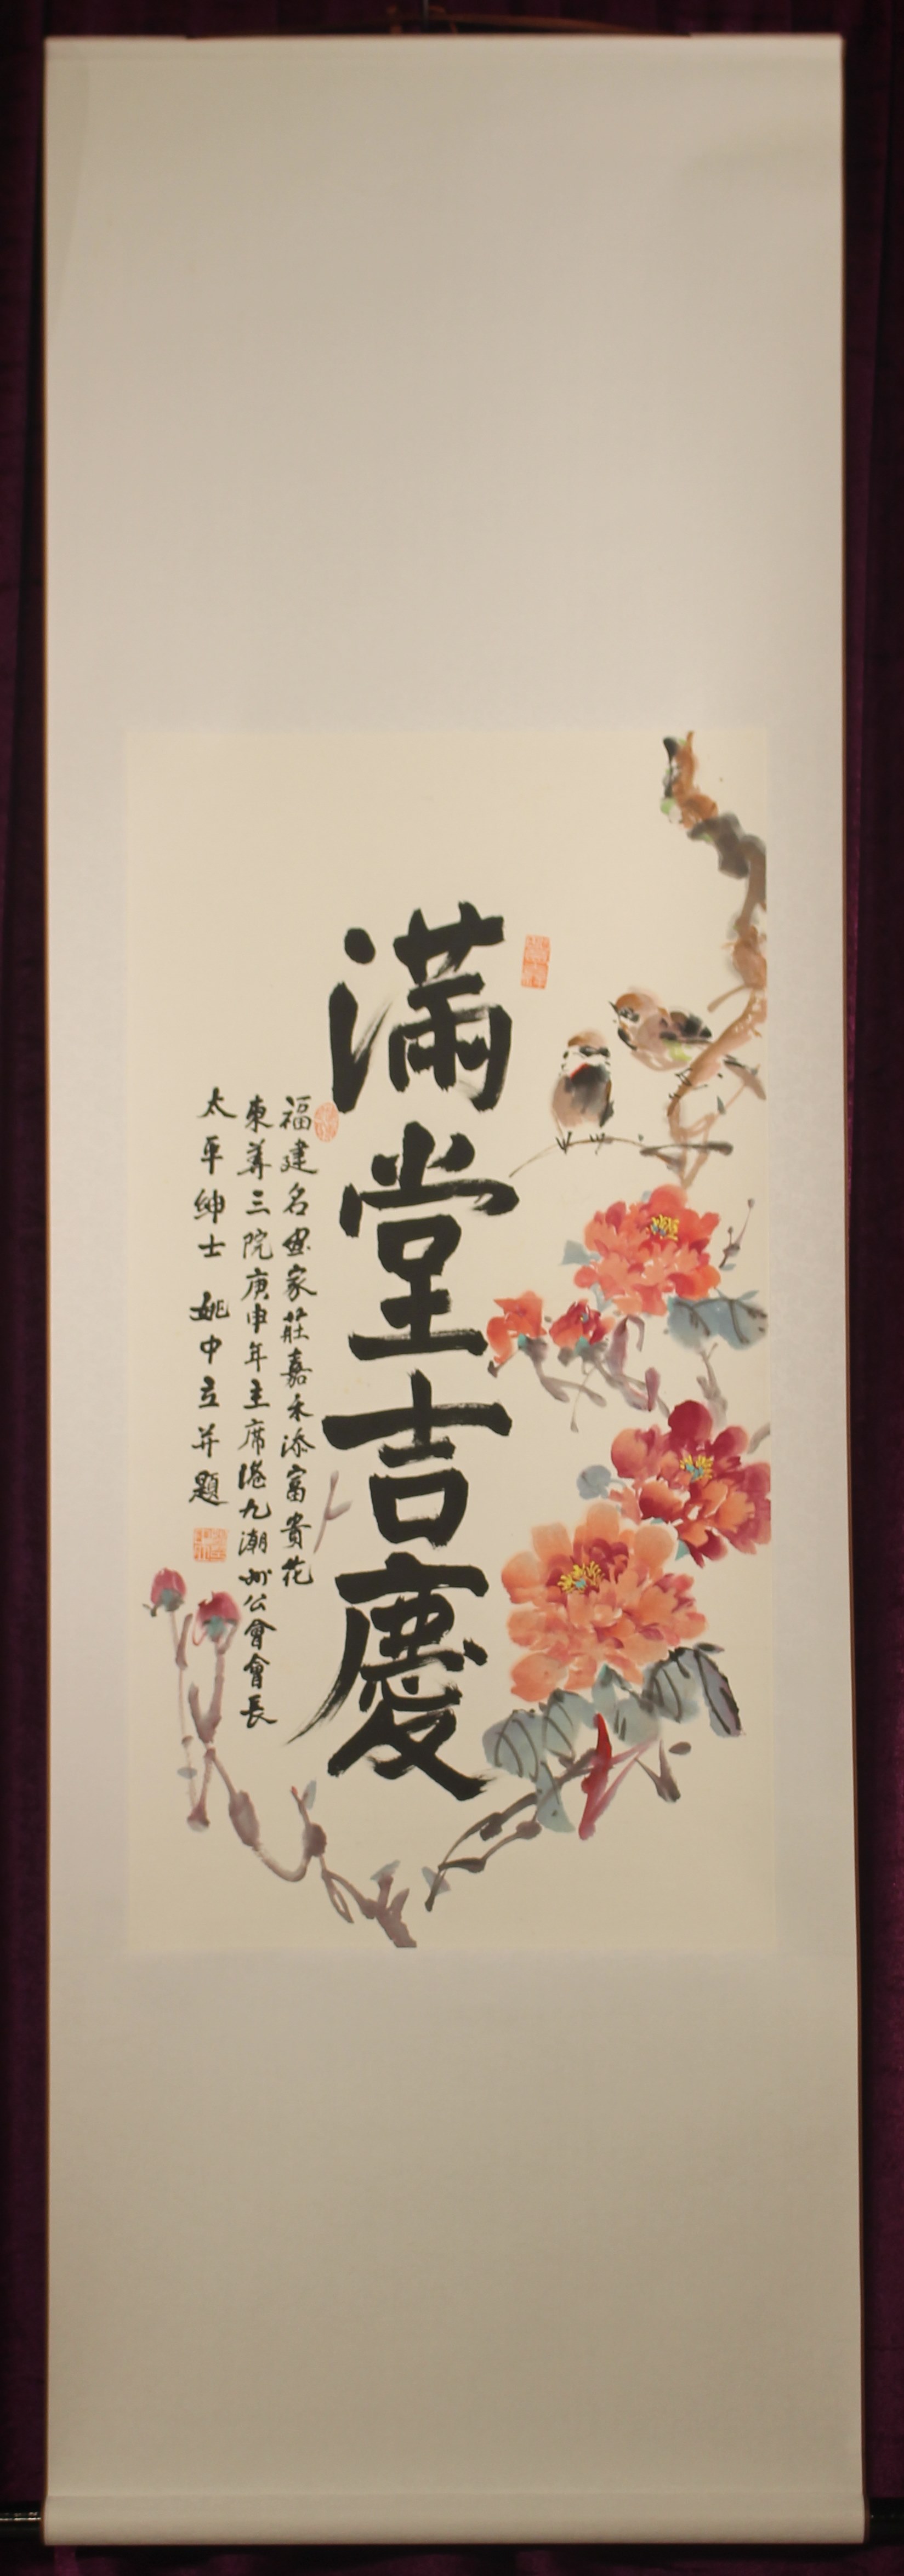 滿堂吉慶
福建名画家莊嘉禾添富貴花
東華三院庚申年主席港九潮州公會會長
太平紳士 姚中立并題